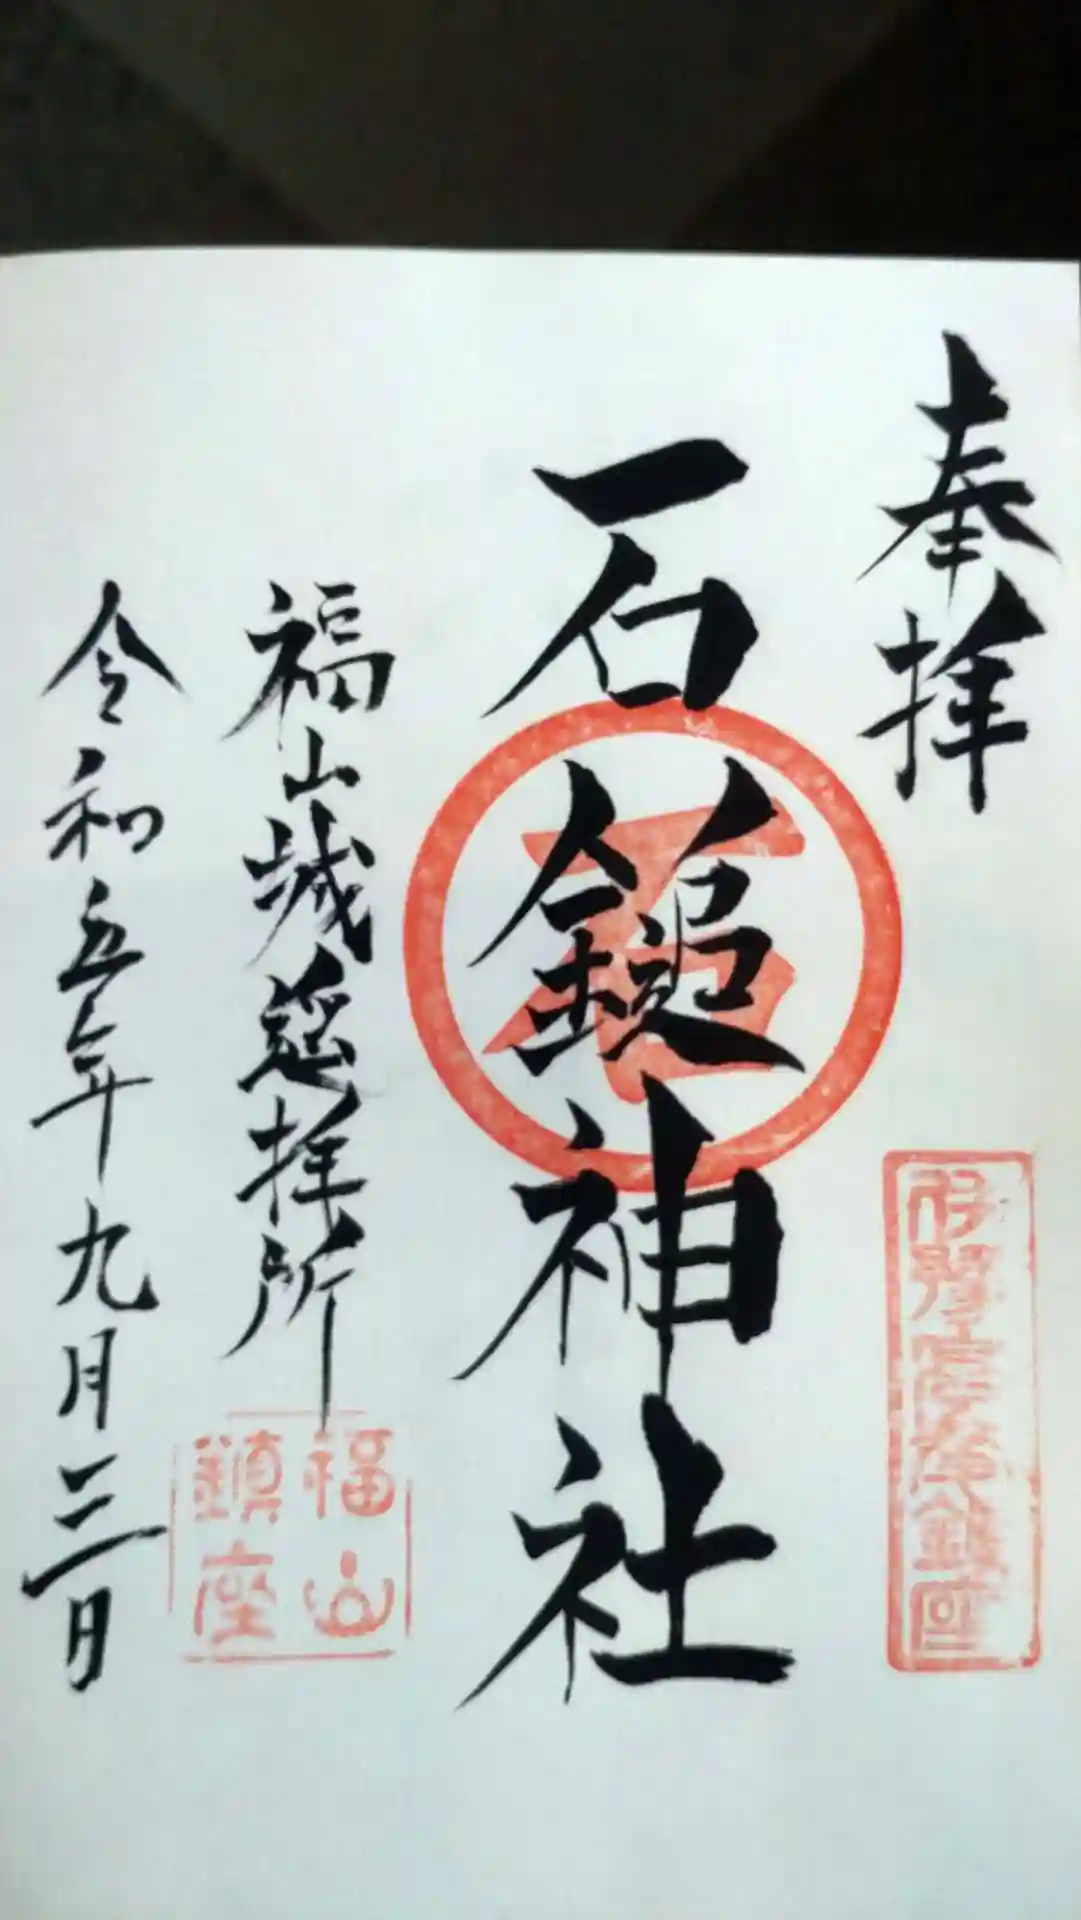 奉拝
石鎚神社
福山城遥拝所
令和五年九月三日
石
福山
鎮座